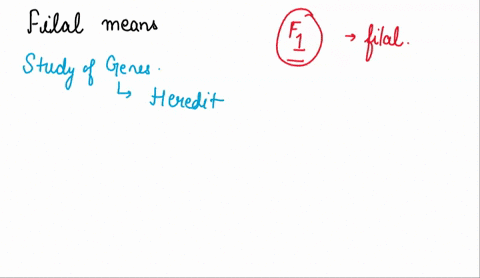 Filal means
F1 → filal.
Study of Genes.
↳ Heredit